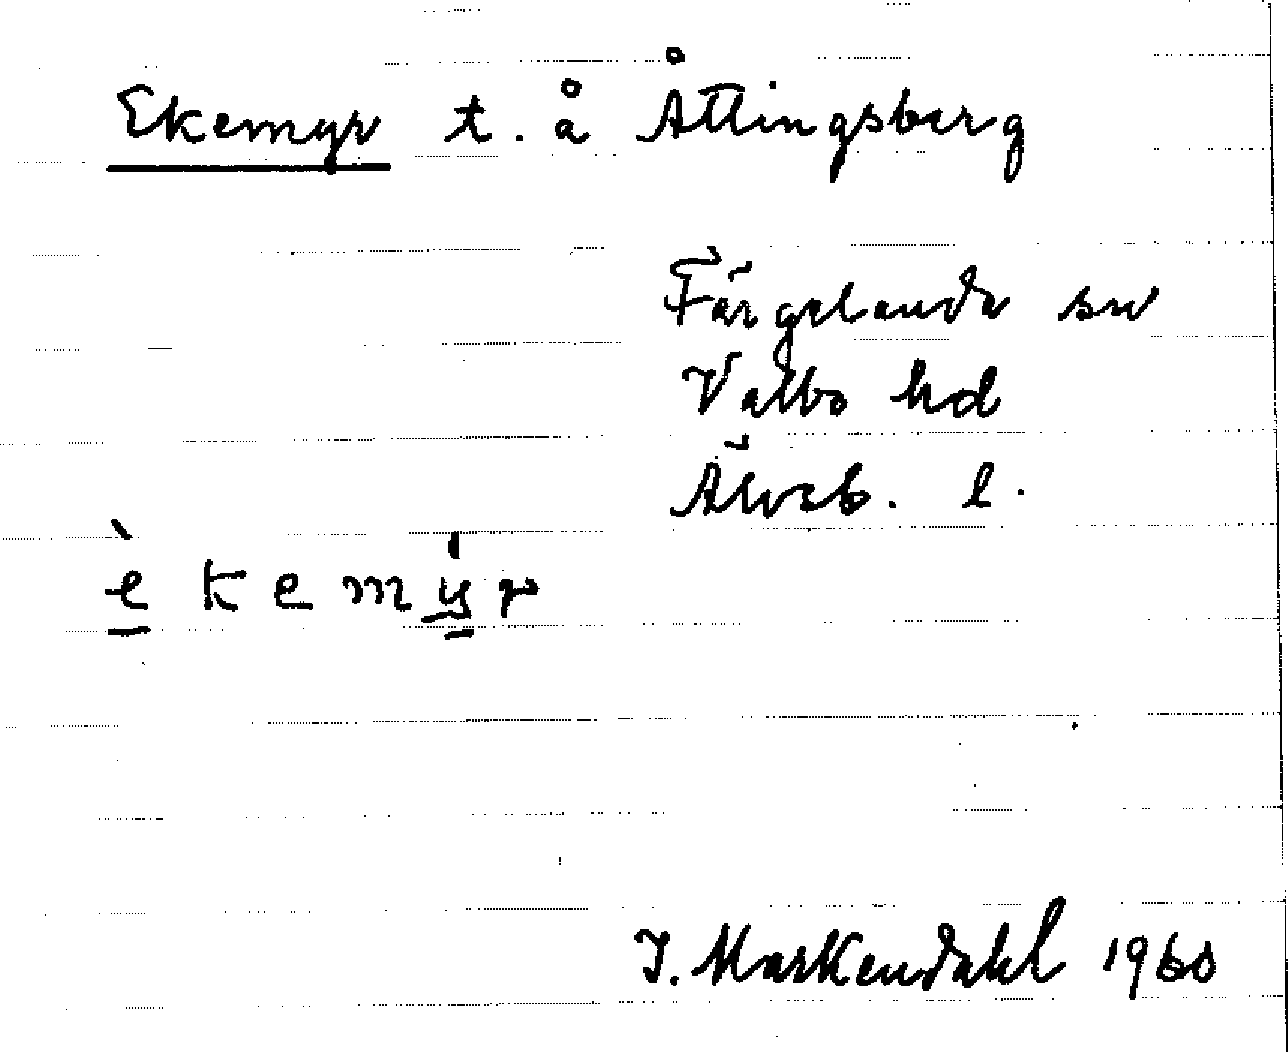 Ekemyr t. å Åttingsberg
Färgelanda sn
Valbo hd
Älvsb. l.
è k e m ý r
I. Markendahl 1960